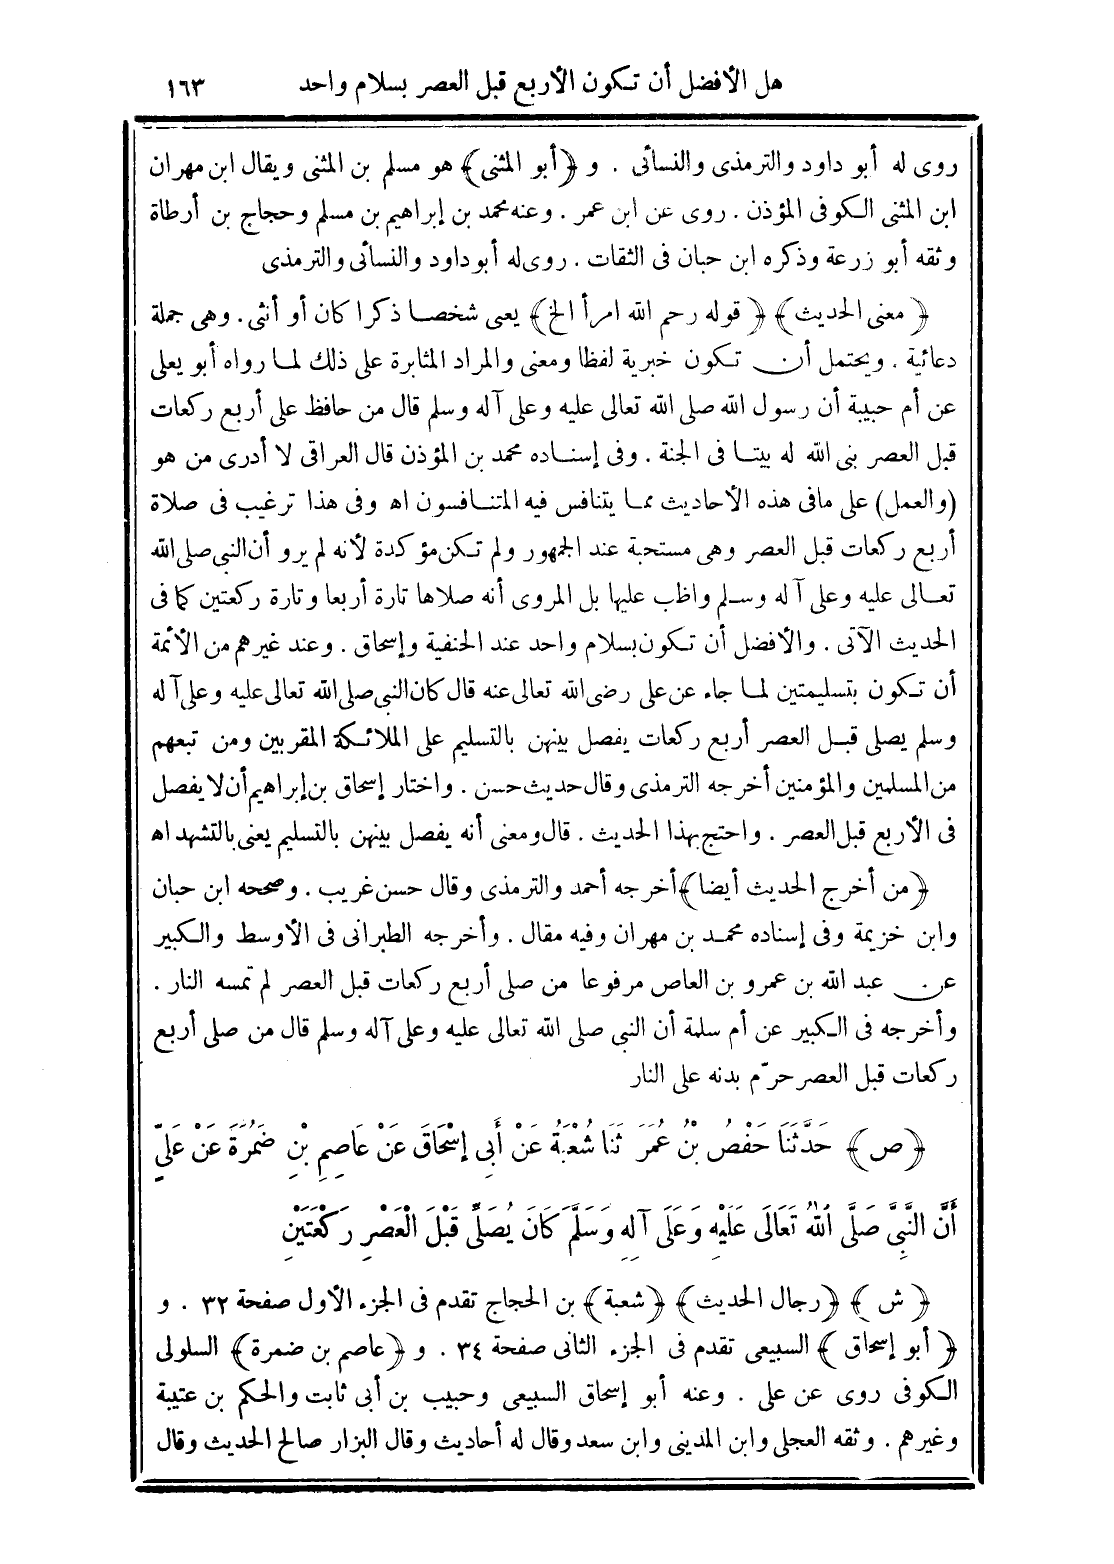 هل الأفضل أن تكون الأربع قبل العصر بسلام واحد ١٦٣
روى له أبو داود والترمذى والنسائى . و ﴿أبو المثنى﴾ هو مسلم بن المثنى ويقال ابن مهران
ابن المثنى الكوفى المؤذن . روى عن ابن عمر . وعنه محمد بن إبراهيم بن مسلم وحجاج بن أرطاة
وثقه أبو زرعة وذكره ابن حبان فى الثقات . روى له أبو داود والنسائى والترمذى
﴿معنى الحديث﴾ ﴿قوله رحم الله امرأ الخ﴾ يعنى شخصا ذكرا كان أو أنثى . وهى جملة
دعائية . ويحتمل أن تكون خبرية لفظا ومعنى والمراد المثابرة على ذلك لما رواه أبو يعلى
عن أم حبيبة أن رسول الله صلى الله تعالى عليه وعلى آله وسلم قال من حافظ على أربع ركعات
قبل العصر بنى الله له بيتا فى الجنة . وفى إسناده محمد بن المؤذن قال العراقى لا أدرى من هو
(والعمل) على ما فى هذه الأحاديث مما يتنافس فيه المتنافسون اه وفى هذا ترغيب فى صلاة
أربع ركعات قبل العصر وهى مستحبة عند الجمهور ولم تكن مؤكدة لأنه لم يرو أن النبى صلى الله
تعالى عليه وعلى آله وسلم واظب عليها بل المروى أنه صلاها تارة أربعا وتارة ركعتين كما فى
الحديث الآتى . والأفضل أن تكون بسلام واحد عند الحنفية وإسحاق . وعند غيرهم من الأئمة
أن تكون بتسليمتين لما جاء عن على رضى الله تعالى عنه قال كان النبى صلى الله تعالى عليه وعلى آله
وسلم يصلى قبل العصر أربع ركعات يفصل بينهن بالتسليم على الملائكة المقربين ومن تبعهم
من المسلمين والمؤمنين أخرجه الترمذى وقال حديث حسن . واختار إسحاق بن إبراهيم أن لا يفصل
فى الأربع قبل العصر . واحتج بهذا الحديث . قال ومعنى أنه يفصل بينهن بالتسليم يعنى بالتشهد اه
﴿من أخرج الحديث أيضا﴾ أخرجه أحمد والترمذى وقال حسن غريب . وصححه ابن حبان
وابن خزيمة وفى إسناده محمد بن مهران وفيه مقال . وأخرجه الطبرانى فى الأوسط والكبير
عن عبد الله بن عمرو بن العاص مرفوعا من صلى أربع ركعات قبل العصر لم تمسه النار .
وأخرجه فى الكبير عن أم سلمة أن النبى صلى الله تعالى عليه وعلى آله وسلم قال من صلى أربع
ركعات قبل العصر حرّم بدنه على النار
﴿ص﴾ حَدَّثَنَا حَفْصُ بْنُ عُمَرَ ثَنَا شُعْبَةُ عَنْ أَبِى إِسْحَاقَ عَنْ عَاصِمِ بْنِ ضَمُرَةَ عَنْ عَلِىٍّ
أَنَّ النَّبِىَّ صَلَّى اللهُ تَعَالَى عَلَيْهِ وَعَلَى آلِهِ وَسَلَّمَ كَانَ يُصَلِّى قَبْلَ الْعَصْرِ رَكْعَتَيْنِ
﴿ش﴾ ﴿رجال الحديث﴾ ﴿شعبة﴾ بن الحجاج تقدم فى الجزء الأول صفحة ٣٢ . و
﴿أبو إسحاق﴾ السبيعى تقدم فى الجزء الثانى صفحة ٣٤ . و ﴿عاصم بن ضمرة﴾ السلولى
الكوفى روى عن على . وعنه أبو إسحاق السبيعى وحبيب بن أبى ثابت والحكم بن عتيبة
وغيرهم . وثقه العجلى وابن المدينى وابن سعد وقال له أحاديث وقال البزار صالح الحديث وقال